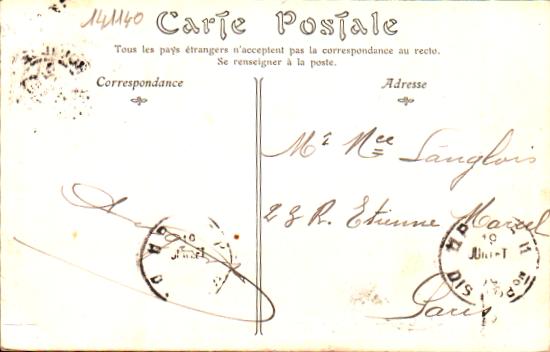 141140
Carte Postale
Tous les pays étrangers n'acceptent pas la correspondance au recto.
Se renseigner à la poste.
Correspondance
Adresse
Mr Langlois
R. Etienne Marcel
Paris
JUILLET